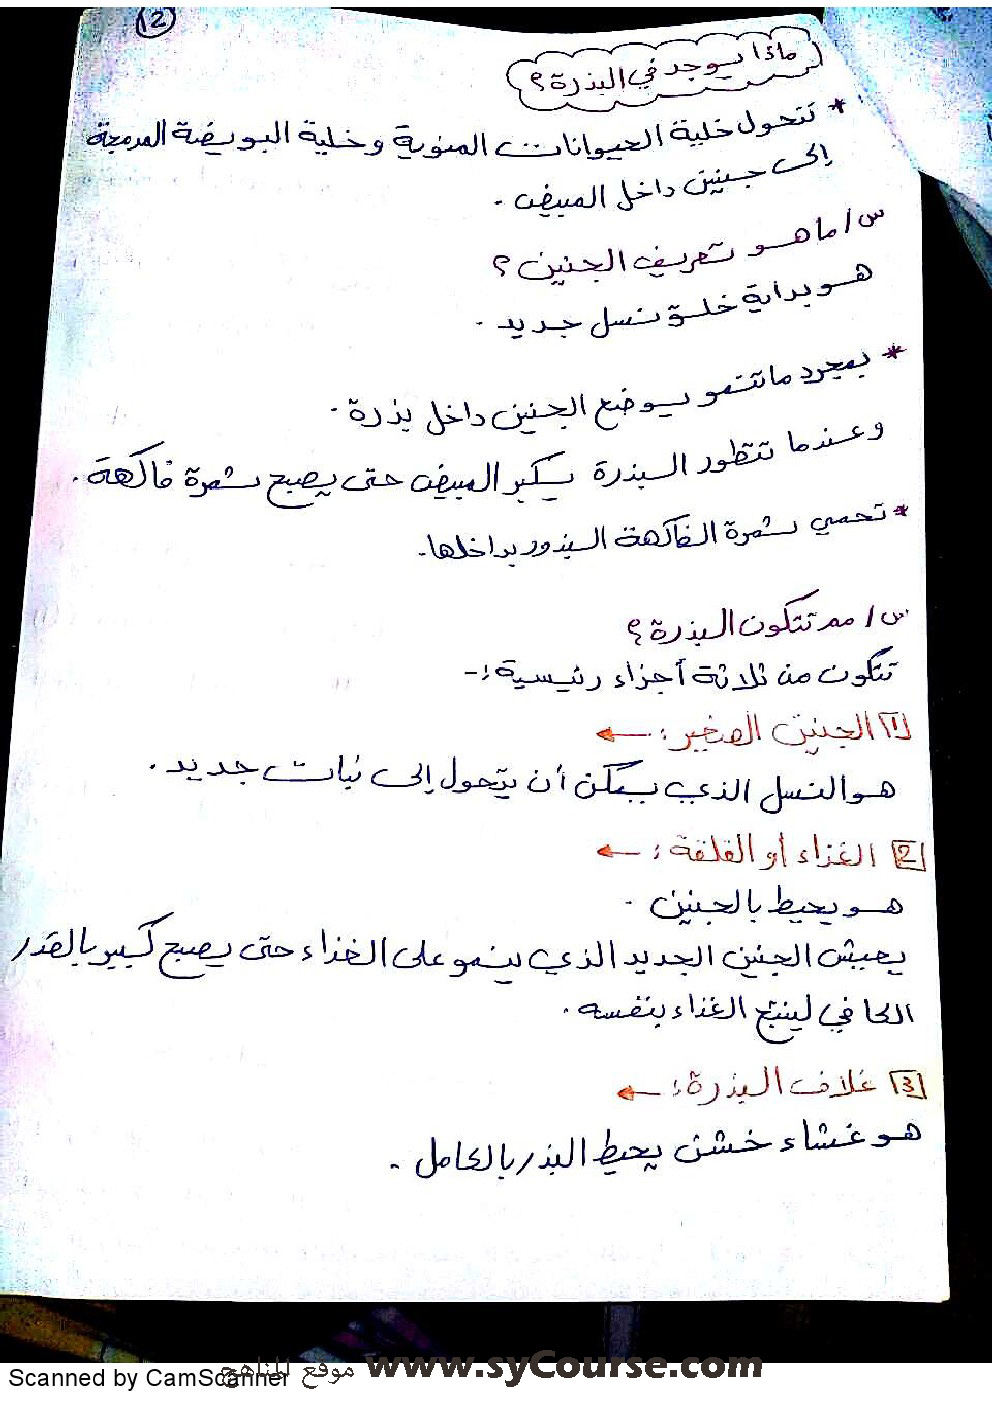 12
ماذا يوجد في البذرة؟
* تتحول خلية الحيوانات المنوية وخلية البويضة المدمجة
إلى جنين داخل المبيض .
س/ ما هو تعريف الجنين ؟
هو بداية خلق نسل جديد .
* بمجرد ما تنمو يوضع الجنين داخل بذرة .
وعندما تتطور البذرة يكبر المبيض حتى يصبح ثمرة فاكهة .
* تحمي ثمرة الفاكهة البذور بداخلها .
س/ مم تتكون البذرة ؟
تتكون من ثلاثة أجزاء رئيسية :-
1 الجنين الصغير : ←
هو النسل الذي يمكن أن يتحول إلى نبات جديد .
2 الغذاء أو الفلقة : ←
هو يحيط بالجنين .
يعيش الجنين الجديد الذي ينمو على الغذاء حتى يصبح كبير بالقدر
الكافي لينتج الغذاء بنفسه .
3 غلاف البذرة : ←
هو غشاء خشن يحيط البذر بالكامل .
موقع المناهج www.syCourse.com
Scanned by CamScanner